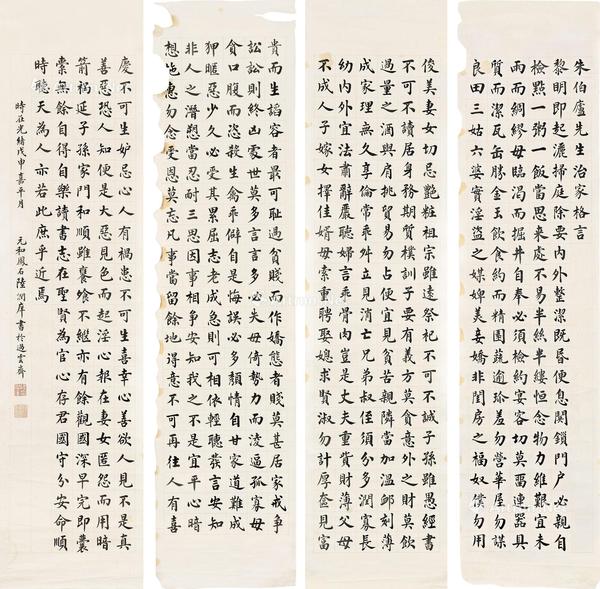 朱伯廬先生治家格言
黎明即起灑掃庭除要內外整潔既昏便息関鎖門户必親自
檢點一粥一飯當思来處不易半絲半縷恒念物力維艱宜未
雨而綢繆毋臨渴而掘井自奉必須檢約宴客切莫畱連器具
質而潔瓦缶勝金玉飲食約而精園蔬逾珍羞勿營華屋勿謀
良田三姑六婆實淫盜之媒婢美妾嬌非閨房之福奴僕勿用
俊美妻女切忌艷粧祖宗雖遠祭祀不可不誠子孫雖愚經書
不可不讀居身務期質樸訓子要有義方莫貪意外之財莫飲
過量之酒與肩挑貿易勿占便宜見貧苦親隣當加温卹刻薄
成家理無久享倫常乖舛立見消亡兄弟叔侄須分多潤寡長
幼內外宜法肅辭嚴聽婦言乖骨肉豈是丈夫重貲財薄父母
不成人子嫁女擇佳婿毋索重聘娶媳求賢淑勿計厚奩見富
貴而生謟容者最可耻遇貧賤而作嬌態者賤莫甚居家戒爭
訟訟則終凶處世莫多言言多必失毋倚勢力而淩逼孤寡毋
貪口腹而恣殺生禽乖僻自是悔誤必多頽惰自甘家道難成
狎暱惡少久必受其累屈志老成急則可相依輕聽發言安知
非人之潛愬當忍耐三思因事相爭安知我之不是宜平心暗
想施惠勿念受恩莫忘凡事當留餘地得意不可再往人有喜
慶不可生妒忌心人有禍患不可生喜幸心善欲人見不是真
善惡恐人知便是大惡見色而起淫心報在妻女匿怨而用暗
箭禍延子孫家門和順雖饔飧不繼亦有餘觀國課早完即囊
橐無餘自得自樂讀書志在聖賢為官心存君國守分安命順
時聽天為人亦若此庶乎近焉
時在光緒戊申嘉平月
元和鳳石陸潤庠書於雲齋